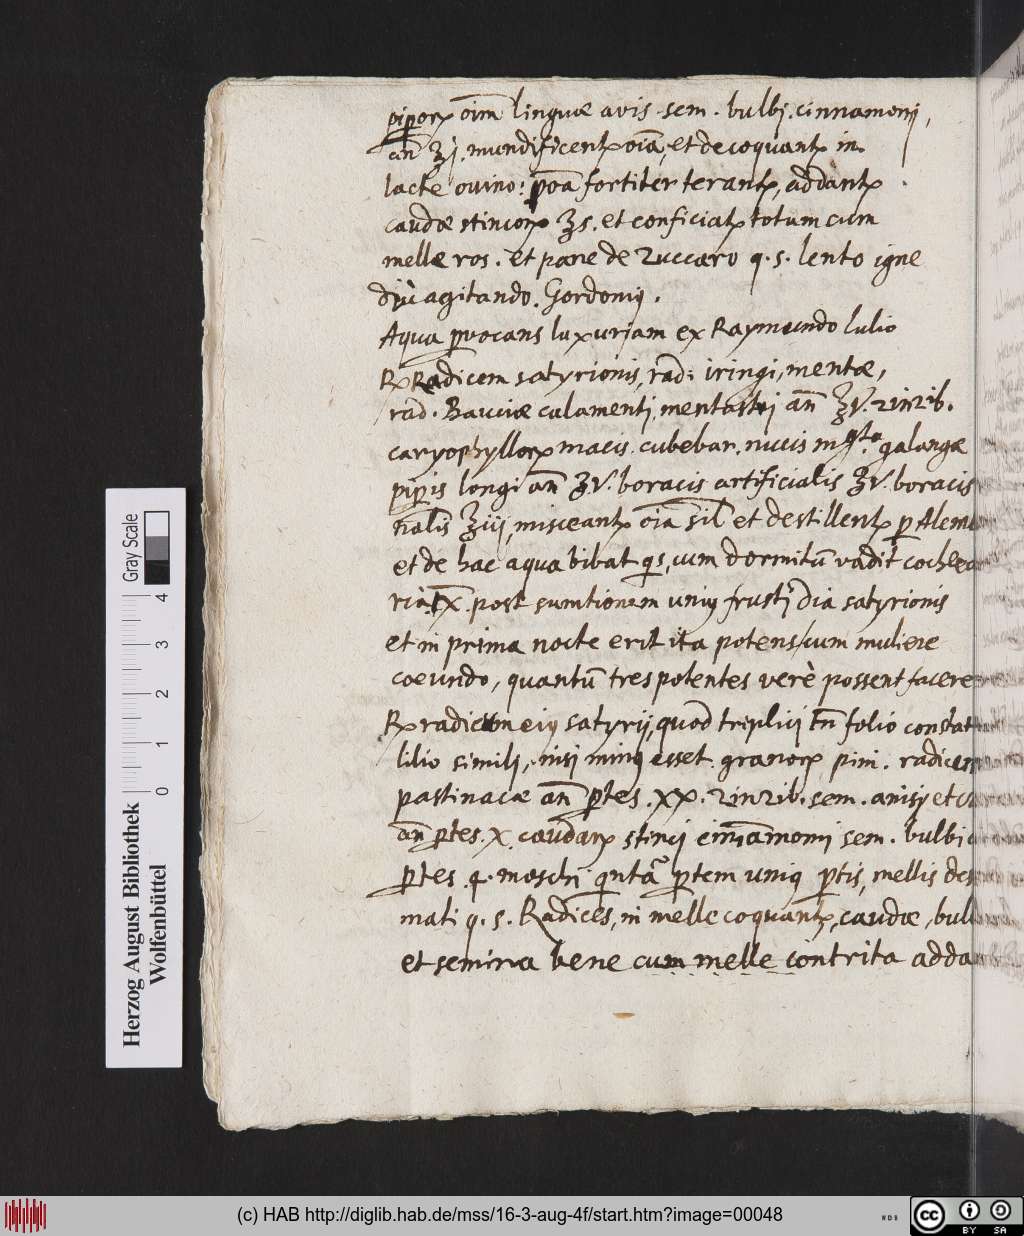 piperorꝝ oīm linguæ avis sem. bulbi. cinnamomi,
añ ʒj. mundificentꝝ oīa, et decoquantꝝ in
lacte ovino: poā fortiter terantꝝ, addantꝝ
caudæ stincorꝝ ʒs. et conficiatꝝ totum cum
melle ros. et pane de zuccaro q. s. lento igne
diù agitando. Gordonij.
Aqua ꝓvocans luxuriam ex Raymundo lulio
℞ Radicem satyrionis, rad: iringi, mentæ,
rad. Bauciæ calamenti, mentastri añ ℥V. zinzib.
caryophyllorꝝ macis. cubebar. nucis mꝯta. galangæ
piꝑis longi añ ʒV. boracis artificialis ʒV. boracis
nalis ʒiij, misceantꝝ oīa sil et destillentꝝ ꝑ Alem
et de hac aqua bibat qs, cum dormitū vadit cochlea
ria X. post sumtionem uniꝯ frusti dia satyrionis
et in prima nocte erit ita potens cum muliere
coeundo, quantū tres potentes verè possent facere
℞ radicem eiꝯ satyrij, quod triplici tñ folio constat
lilio simili, nisi minꝯ esset. granorꝝ pini. radicem
pastinacæ añ ꝑtes. XX. zinzib. sem. anisi et
añ ꝑtes. X. caudarꝝ stinci cinnamomi sem. bulbi
ꝑtes 4. moschi qintā ꝑtem uniꝯ ꝑtis, mellis des
mati q. s. Radices, in melle coquantꝝ, caudæ, bul
et semina bene cum melle contrita adda
Herzog August Bibliothek
Wolfenbüttel
0 1 2 3 4
Gray Scale
(c) HAB http://diglib.hab.de/mss/16-3-aug-4f/start.htm?image=00048
WDB
cc
BY SA